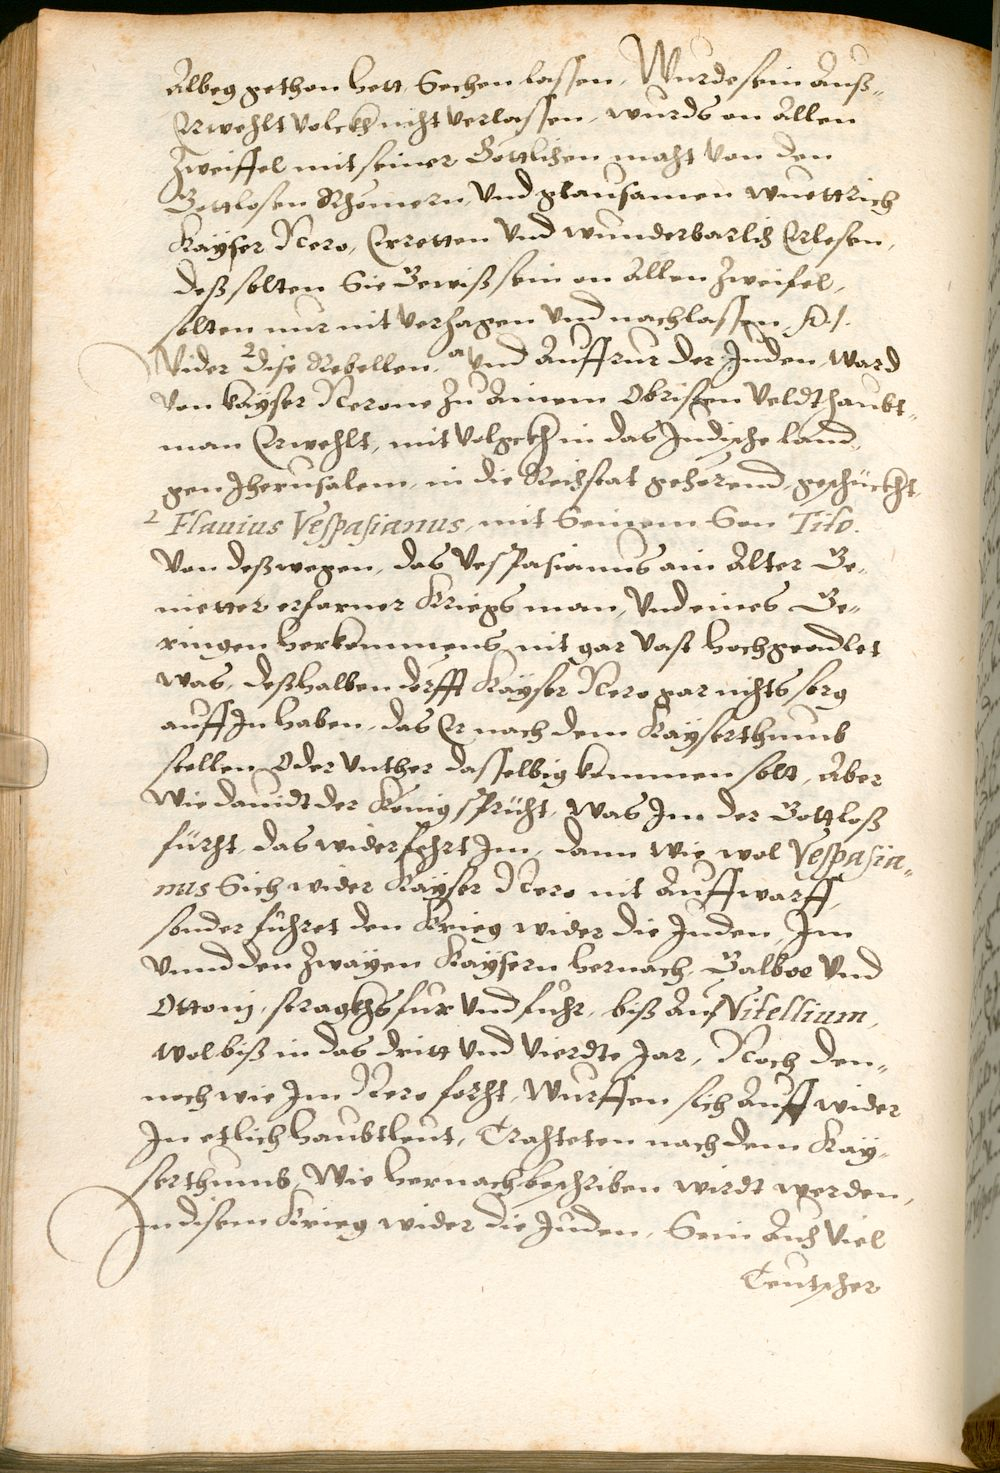 Albeg gethon hett, Sechen lassen, Wurde sein Auß„
Erwehlt Volckh nicht verlassen, wurds on Allen
Zweiffel mit seiner Göttlichen macht von den
Gottlosen Rhömern, Und grausamen wuettrich
Kayser Nero, Erretten Und wunderbarlich Erlesen,
deß solten Sie Gewiß sein on Allen Zweifel,
solten nur nit verzagen Und nachlassen
Wider 2 dise Rebellen, a Und Auffrur der Juden, ward
Von kayser Nerone Zu Ainem Obristen Veldthaubt„
man Erwehlt, mit Volgkh in das Jüdische land,
gen Jherusalem, in die Reichstat gehörend, geschückht,
2 Flauius Vespasianus, mit Seinem Son Tito.
Von deßwegen, das Vespasianus ain Alter Ge„
nietter erfarner Kriegs man, Und eines Ge„
ringen herkommens nit gar vast hochgeadlet
was, deßhalben dorfft Kayser Nero gar nichts sorg
auff In haben, das Er nach dem Kayserthumb
stellen Oder vnther dasselbig kommen solt, Aber
Wie dauidt der König spricht, Was Im der Gottloß
fürcht, das widerfehrt Im, dann wie wol Vespasia„
nus Sich wider Kayser Nero nit Auffwarff,
sonder führet den Krieg wider die Juden, Im
Vnnd den Zwayen Kaysern hernach, Galbae Und
Ottoni, stragkhs fur Und fuhr, biß Auf Vitellium,
wol biß in das dritt Und Vierdte Jar, Noch den„
noch wie Im Nero forcht, Wurffen sich Auff wider
In etlich haubtleut, Trachteten nach dem Kay„
serthumb, Wie hernach beschriben wirdt werden,
In disem Krieg wider die Juden, Sein Auch Viel
Teutscher